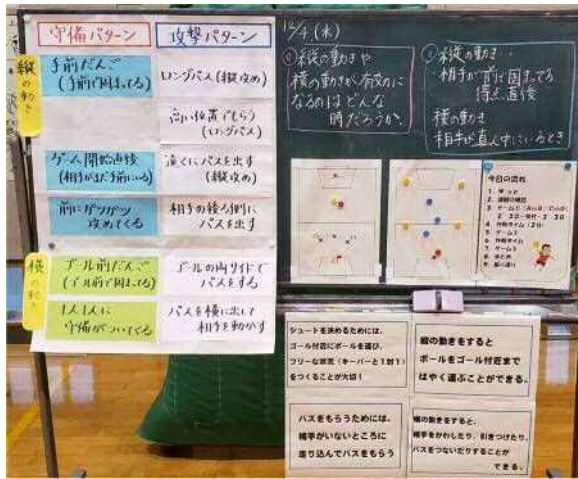 守備パターン
攻撃パターン
縦の動き
手前だんご
(手前で固まってる)
ロングパス(縦攻め)
高い位置でもらう
(ロングパス)
ゲーム開始直後
(相手がまだ手前にいる)
遠くにパスを出す
(縦攻め)
前にガツガツ
攻めてくる
相手の後ろ側に
パスを出す
横の動き
ゴール前だんご
(ゴール前で固まってる)
ゴールの両サイドで
パスをする
1人1人に
守備がついてくる
パスを横に出して
相手を動かす
12/4(水)
縦の動きや
横の動きが有効に
なるのはどんな
時だろうか。
縦の動き…
相手が前に固まってる
得点直後
横の動き
相手が真ん中にいるとき
今日の流れ
シュートを決めるためには、
ゴール付近にボールを運び、
フリーな状況(キーパーと1対1)
をつくることが大切!
縦の動きをすると
ボールをゴール付近まで
はやく運ぶことができる。
パスをもらうためには、
相手がいないところに
走り込んでパスをもらう
横の動きをすると、
相手をかわしたり、引きつけたり、
パスをつないだりすることが
できる。